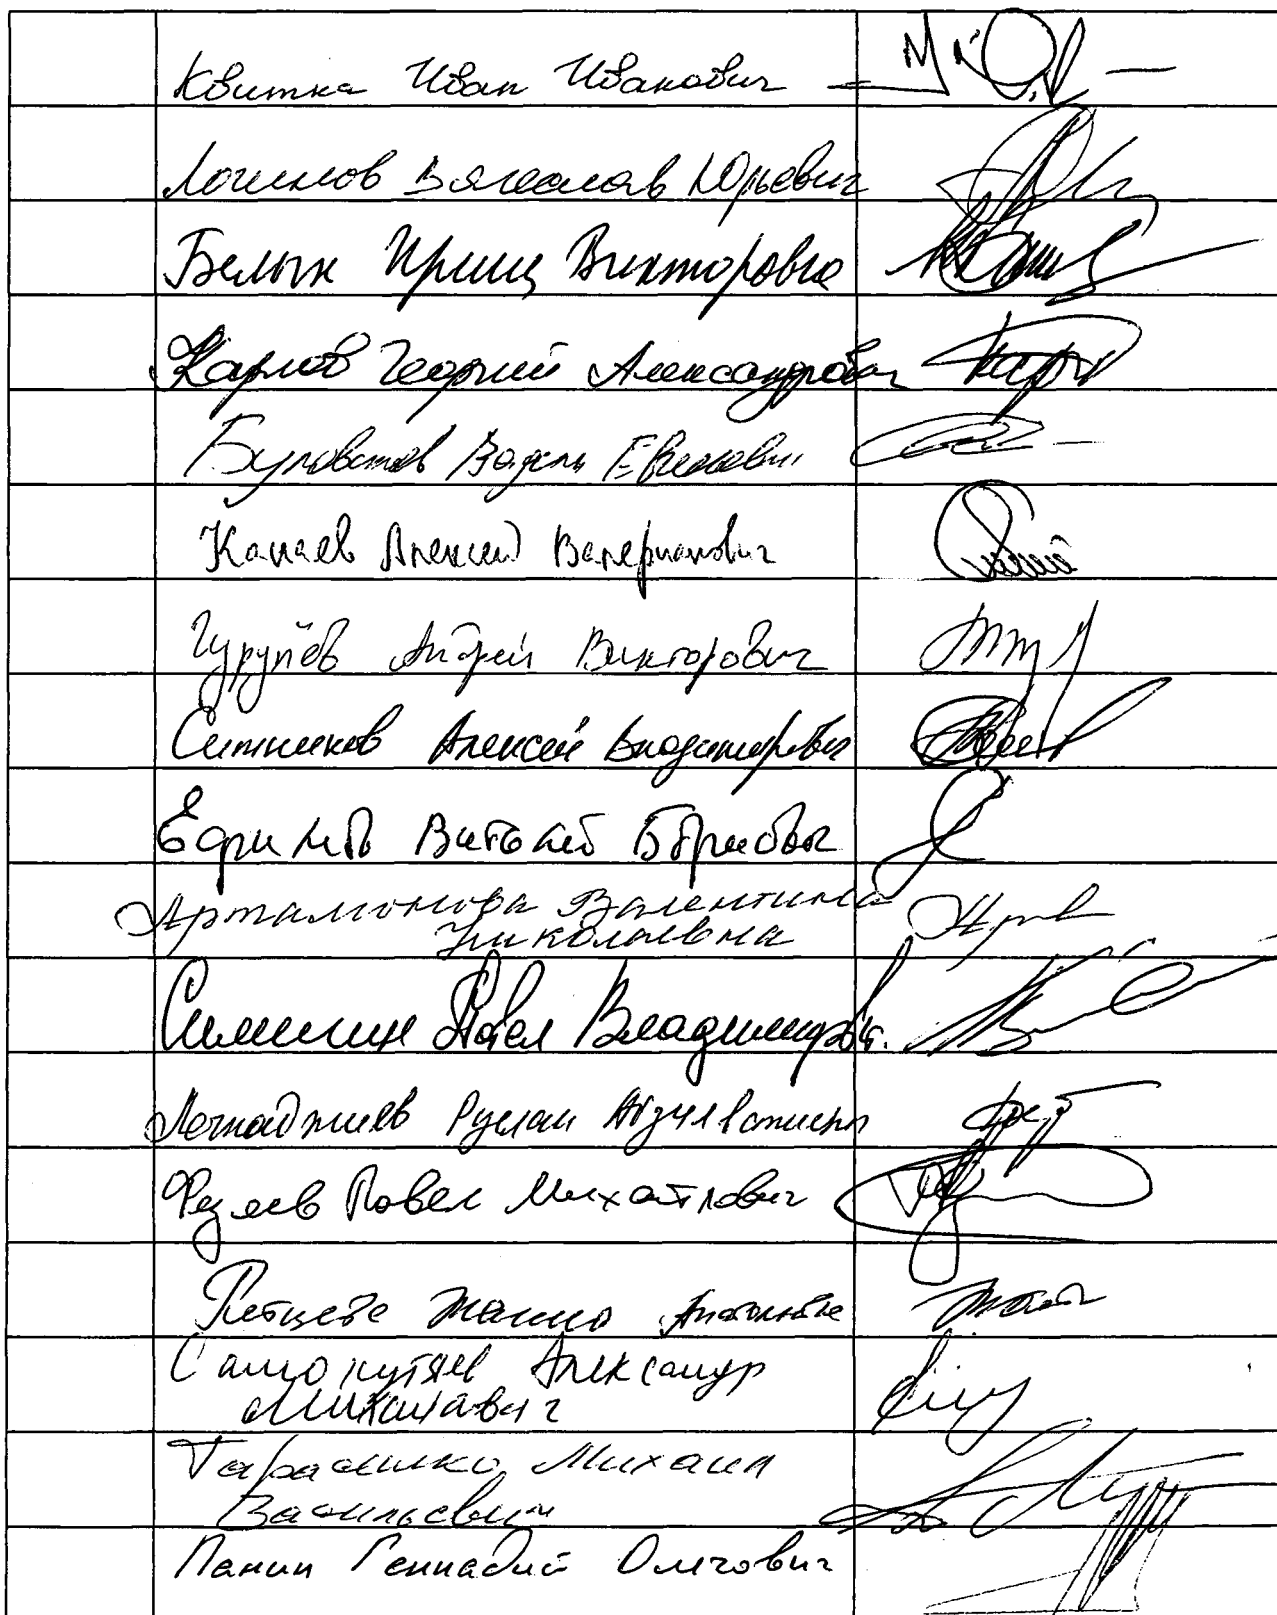 Квитка Иван Иванович
Логинов Вячеслав Юрьевич
Белых Ирина Викторовна
Карлов Георгий Александрович
Вадим Евгеньевич
Канаев Алексей Валерианович
Гурулёв Андрей Викторович
Ситников Алексей Владимирович
Ефимов Виталий Борисович
Артамонова Валентина
Николаевна
Симигин Павел Владимирович
Руслан
Федяев Павел Михайлович
Жанна Анатольевна
Самокутяев Александр
Михайлович
Тарасенко Михаил
Васильевич
Панин Геннадий Олегович